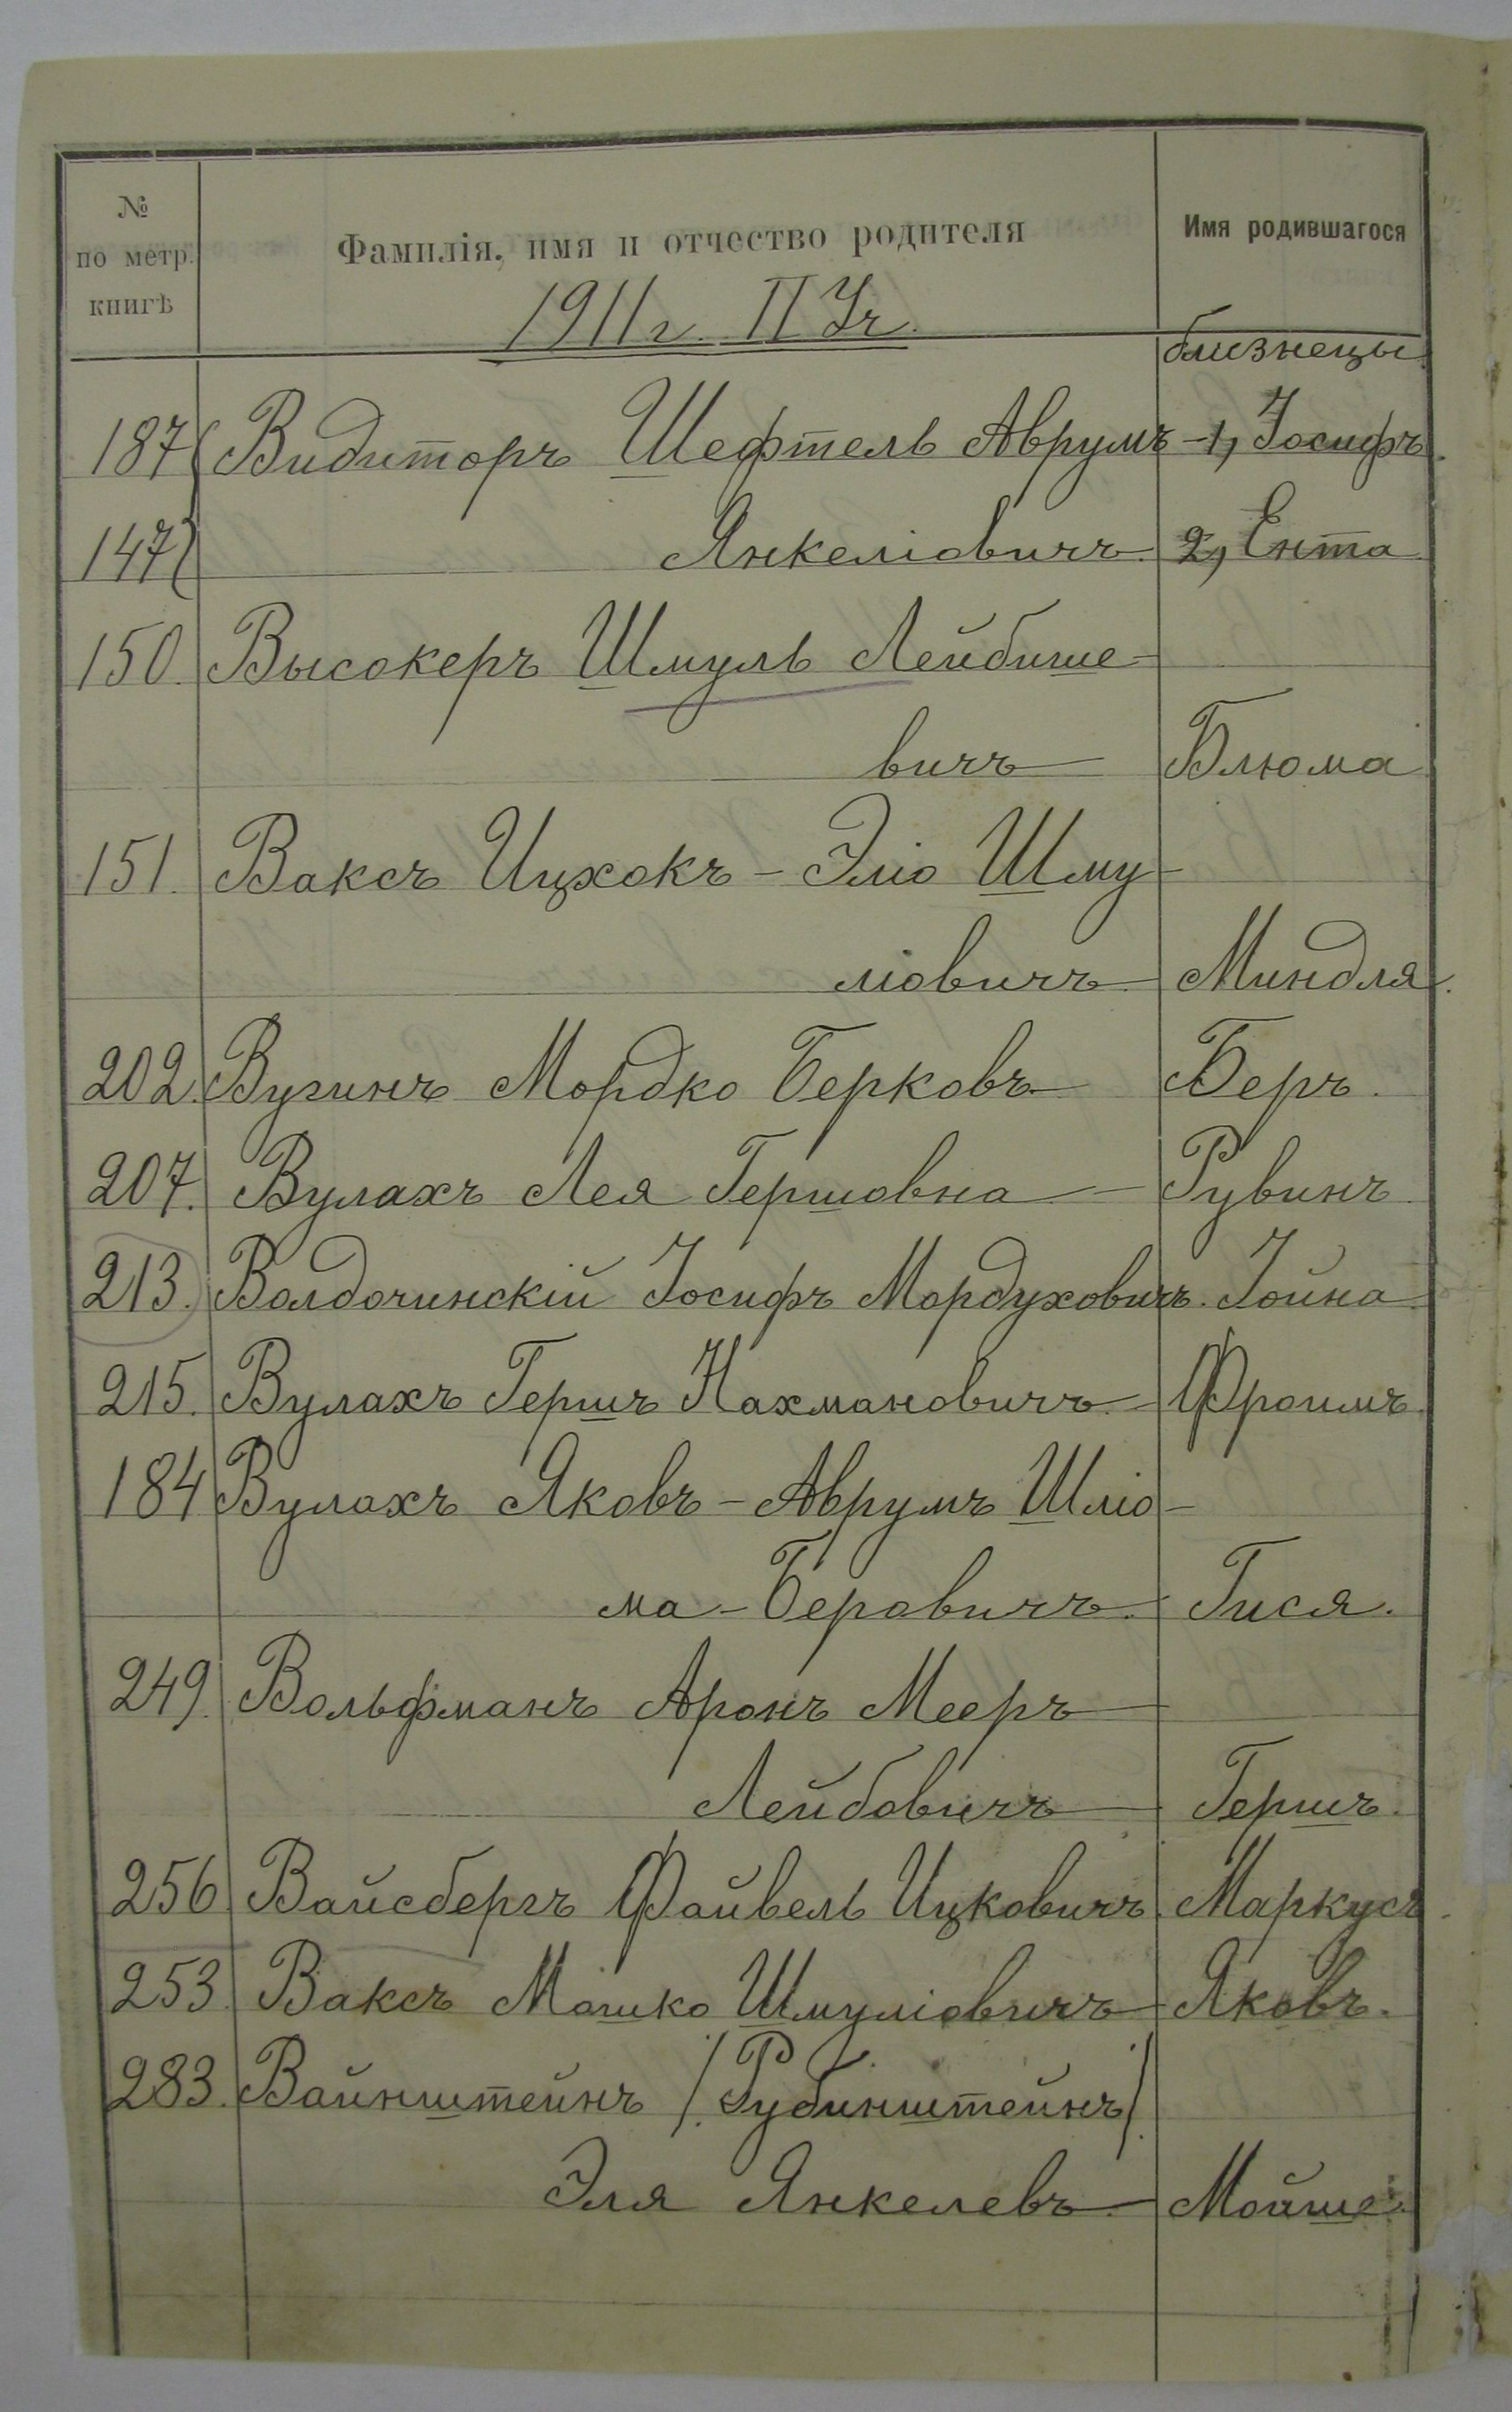 № по метр. книгѣ
Фамилія, имя и отчество родителя
Имя родившагося
1911 г. II Уч.
близнецы.
187 Видиторъ Шефтель Аврумъ - 1, Іосифъ.
147 Янкеліовичъ 2, Ента
150. Высокеръ Шмуль Лейбише-
вичъ Блюма
151. Ваксъ Ицхокъ - Эліо Шму-
ліовичъ Миндля.
202. Вугинъ Мордко Берковъ Беръ.
207. Вулахъ Лея Гершовна - Рувинъ
213. Волдочинскій Іосифъ Мордуховичъ. Іойна.
215. Вулахъ Гершъ Нахмановичъ - Фроимъ.
184 Вулахъ Яковъ - Аврумъ Шліо-
ма - Беровичъ. Гися.
249. Вольфманъ Аронъ Мееръ
Лейбовичъ Гершъ.
256 Вайсбергъ Файвель Ицковичъ. Маркусъ.
253. Ваксъ Мошко Шмуліовичъ Яковъ.
283. Вайнштейнъ /Рубинштейнъ/
Эля Янкелевъ Мойше.